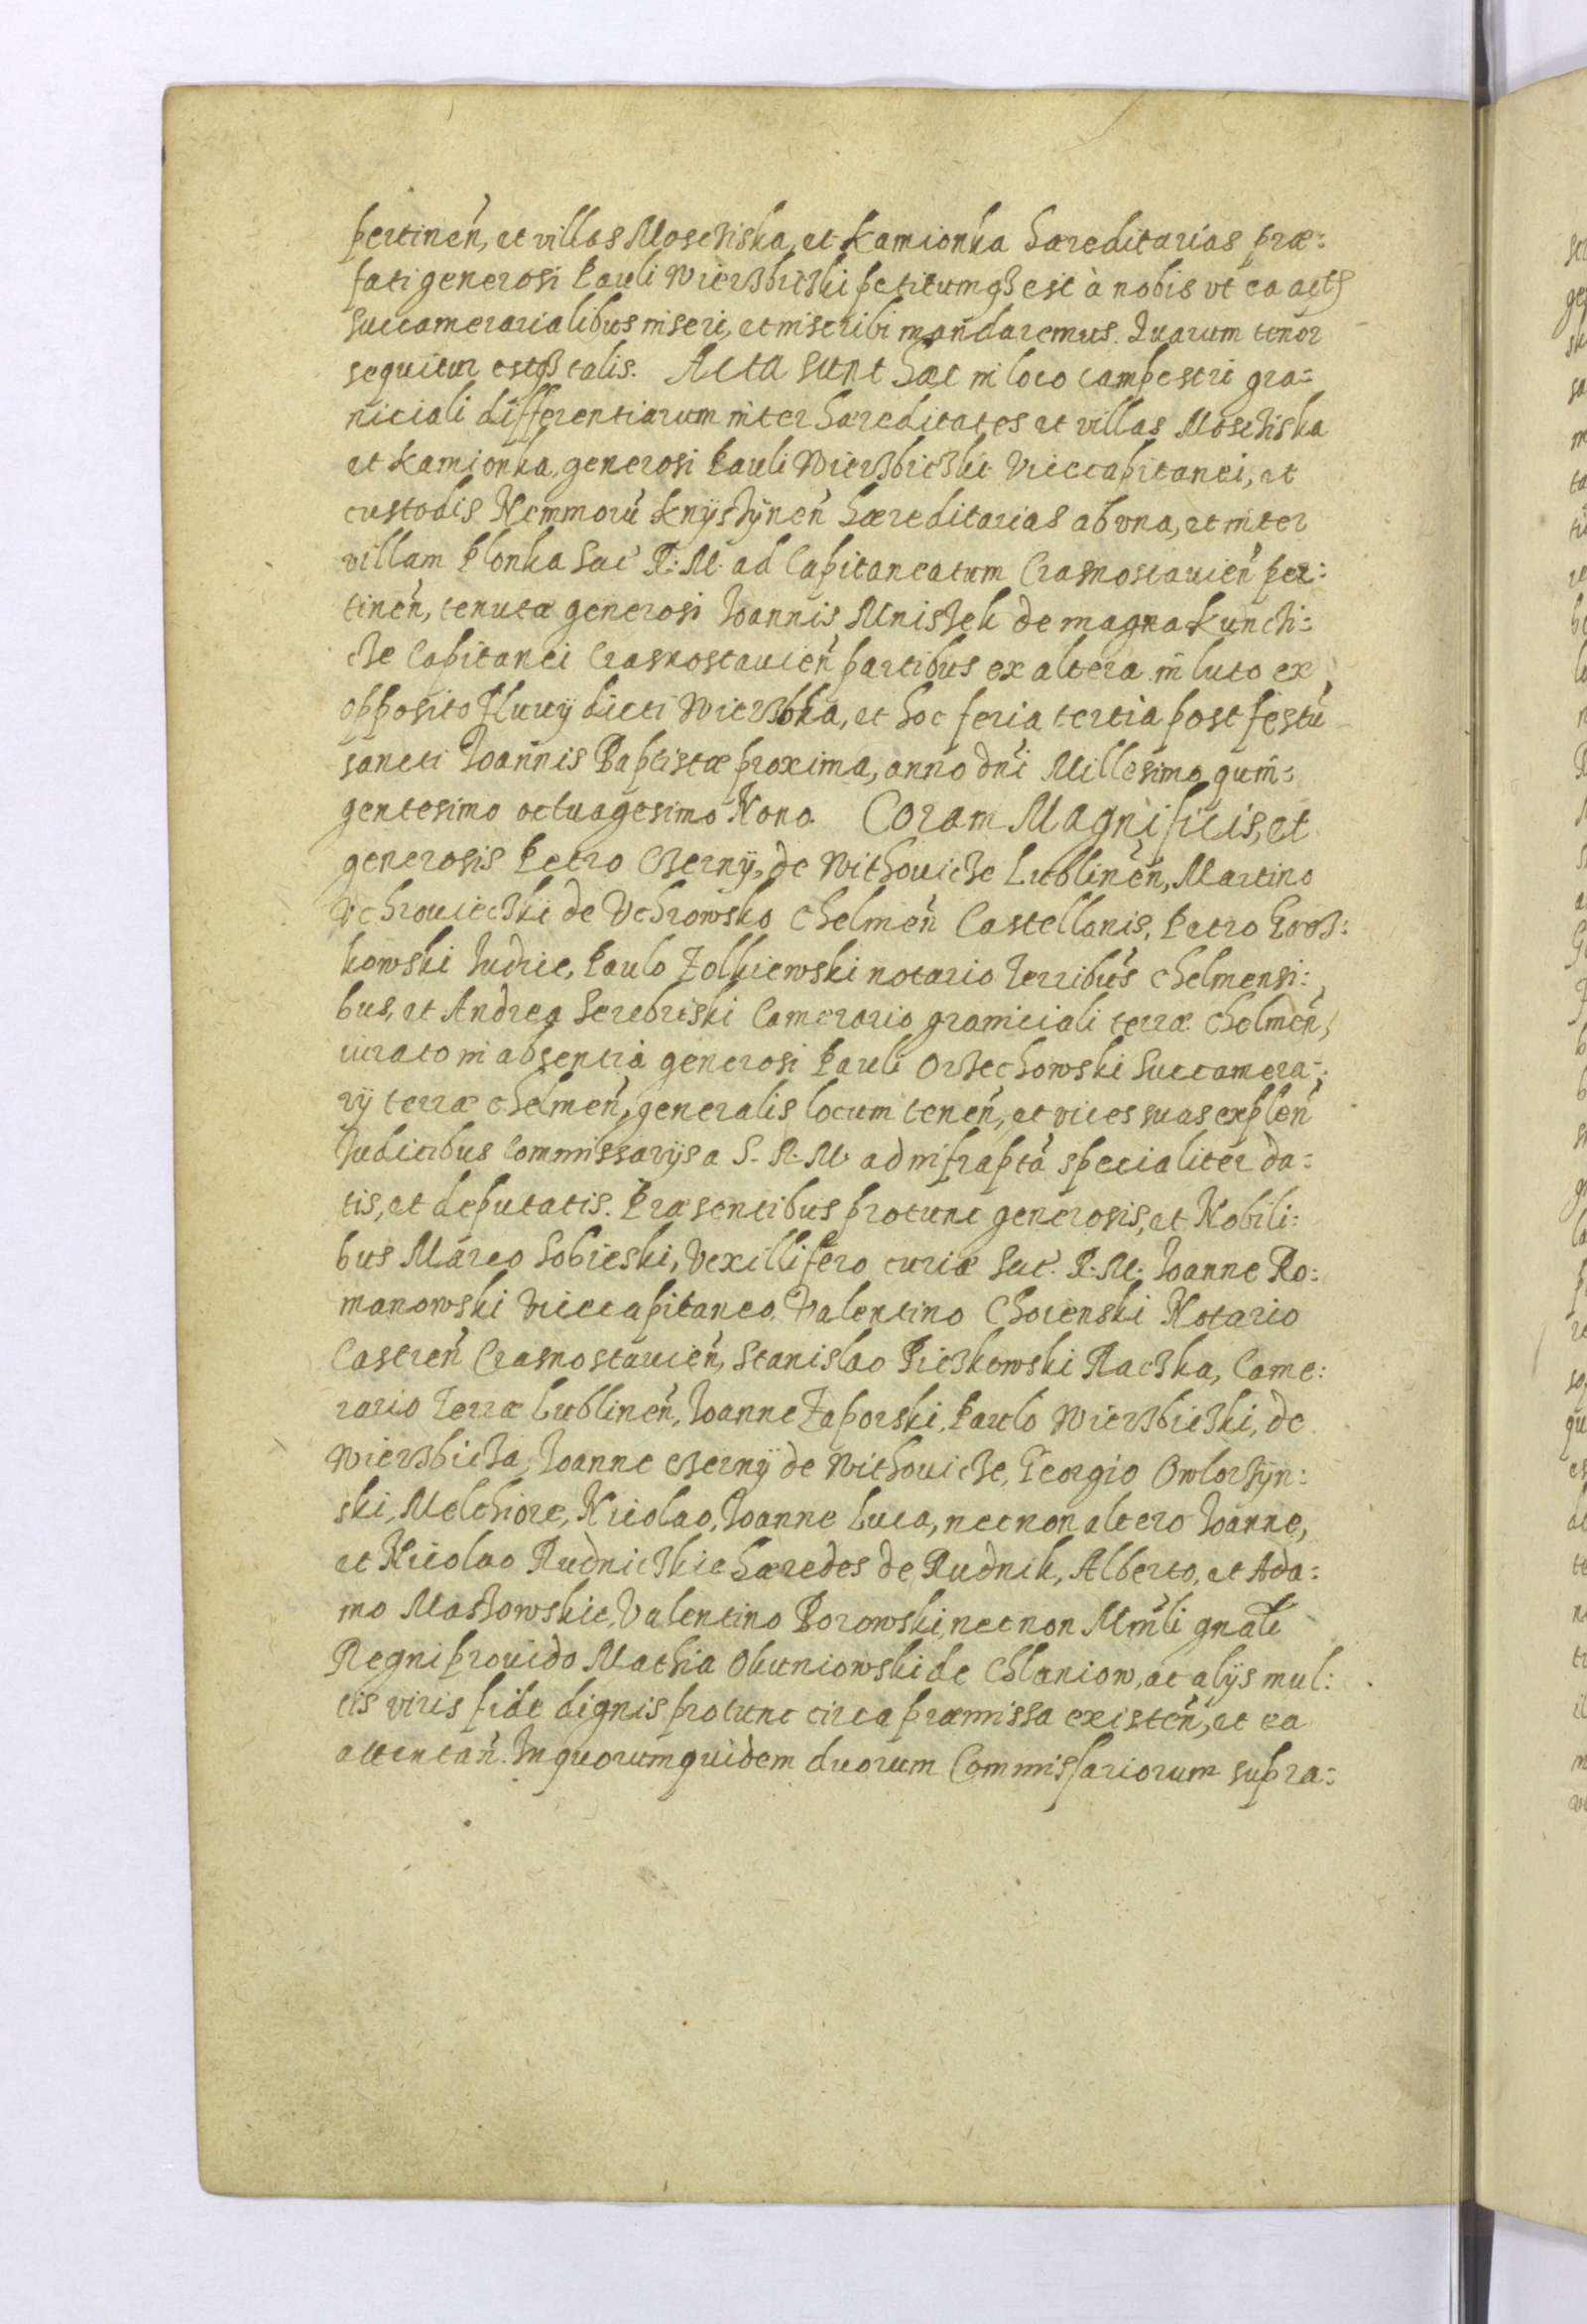 pertineñ, et villas Mosciska, et Kamionka hæreditarias præ:
fati generosi Pauli Wierzbiczki petitumqz est à nobis vt ea actis
succamerarialibus inseri, et inscribi mandaremus. Quarum tenor
sequitur estqz talis. Acta sunt hæc in loco campestri gra:
niciali differentiarum inter hæreditates et villas Mosciska
et Kamionka, generosi Pauli Wierzbiczki Vicecapitanei, et
custodis Nemmorũ Knÿszÿneñ hæreditarias ab vna, et inter
villam Plonka Sac̃ R: M: ad Capitaneatum Crasnostauieñ per:
tineñ, tenutæ generosi Joannis Mniszek de magna Kunczi:
cze Capitanei Crasnostauieñ partibus ex altera in luto ex
opposito Fluuÿ dicti Wierzbka, et hoc feria tertia post festũ
sancti Joannis Baptistæ proxima, anno dñi Millesimo quin:
gentesimo octuagesimo Nono. Coram Magnificis, et
generosis Petro Czernÿ, de Withouicze Lublineñ, Martino
Vchrowieczki de Vchrowsko Chelmeñ Castellanis, Petro Gorz:
kowski Iudice, Paulo Zolkiewski notario Terribus Chelmensi:
bus, et Andrea Serebriski Camerario graniciali terræ Chelmeñ,
iurato in absentia generosi Pauli Orzechowski Succamera:
rÿ terræ Chelmeñ, generalis locum teneñ, et vices suas expleñ
Iudicibus Commissarÿs a S. R. M. ad infrapta specialiter da:
tis, et deputatis. Præsentibus protunc generosis, et Nobili:
bus Marco Sobieski, Vexillifero curiæ Sac: R: M: Joanne Ro:
manowski Vicecapitaneo, Valentino Chorenski Notario
Castreñ Crasnostauieñ, Stanislao Ciezkowski Raczka, Came:
rario Terræ Lublineñ, Joanne Zaporski, Paulo Wierzbiczki, de
Wierzbicza, Joanne Czernÿ de Withouicze, Georgio Owlorzÿn:
ski, Melchiore, Nicolao, Joanne Luca, necnon altero Joanne,
et Nicolao Rudniczkie hæredes de Rudnik, Alberto, et Ada:
mo Maszowskie, Valentino Borowski, necnon Minli gnali
Regni prouido Mathia Okuniowski de Chlaniow, ac alÿs mul:
tis viris fide dignis protunc circa præmissa existeñ, et ea
attentañ. In quorum quidem duorum Commissariorum supra: